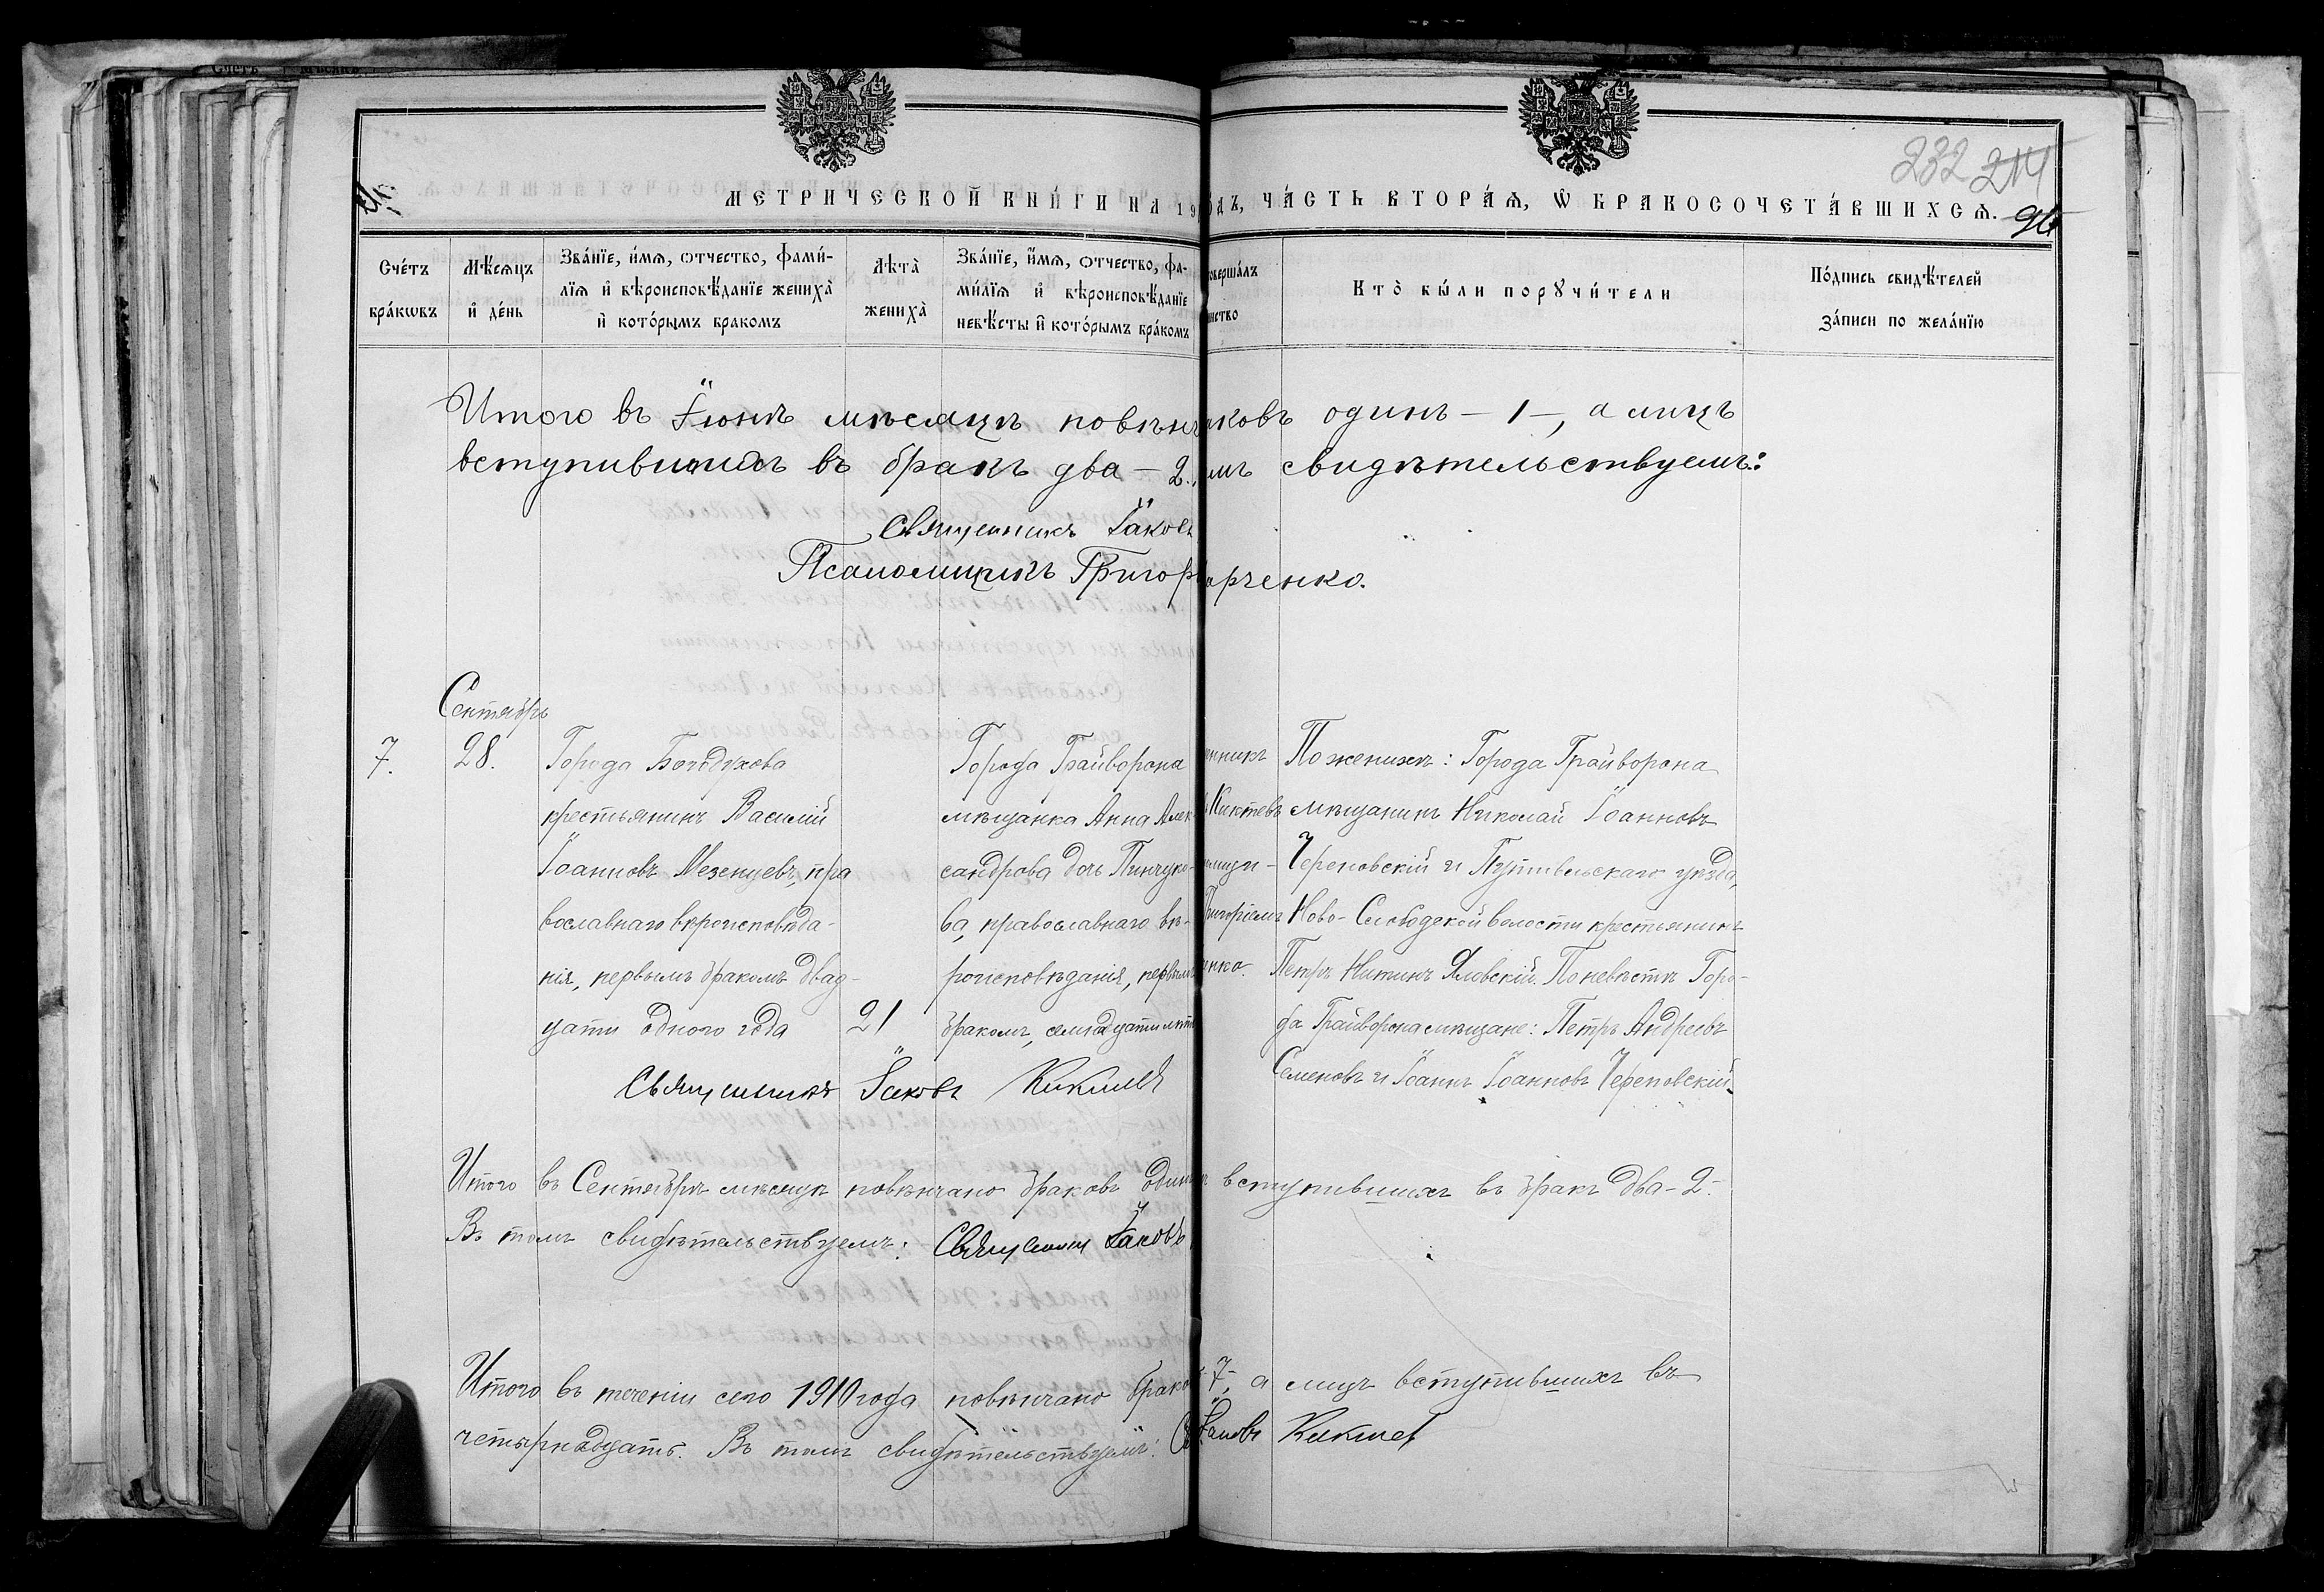 232 214
МЕТРИЧЕСКОЙ КНИ́ГИ НА 19
ДЪ, ЧА́СТЬ ВТОРА́Ѧ, Ѡ БРАКОСОЧЕТА́ВШИХСѦ.
Сче́тъ бра́кѡвъ
Мѣ́сѧцъ и҆ де́нь
Зва́нїе, и́мѧ, отчество, фами́-
лїѧ и҆ вѣроисповѣ́данїе жениха̀
и҆ кото́рымъ бракомъ
Лѣта̀ жениха̀
Зва́нїе, и҆́мѧ, отчество, фа-
ми́лїѧ и҆ вѣроисповѣ́данїе
невѣ́сты и҆ кото́рымъ бра́комъ
соверша́лъ
Кто̀ бы́ли порꙋчи́тели
По́дпись свидѣ́телей
за́писи по жела́нїю
Итого въ Їюнѣ мѣсяцѣ повѣнч
аковъ одинъ – 1 –, а лицъ
вступившихъ въ бракъ два – 2.,
мъ свидѣтельствуемъ:
Священникъ Їаковъ
Псаломщикъ Григор
арченко.
Сентябрь
7.
28.
Города Богодухова
крестьянинъ Василій
Їоанновъ Мезенцевъ, пра
вославнаго вѣроисповѣда-
нія, первымъ бракомъ двад-
цати одного года
21
Города Грайворона
мѣщанка Анна Алек
сандрова дочь Пинчуко-
ва, православнаго вѣ-
роисповѣданія, первымъ
бракомъ, семнадцати лѣтъ
нникъ
Киктевъ
омщи-
Григоріемъ
енко.
По женихѣ: Города Грайворона
мѣщанинъ Николай Їоанновъ
Череповскій и Путивльскаго уѣзда,
Ново-Слободской волости крестьянинъ
Петръ Никитинъ Яловскій. По невѣстѣ Горо-
да Грайворона мѣщане: Петръ Андреевъ
Семеновъ и Їоаннъ Їоанновъ Череповскій.
Священникъ Їаковъ Киктевъ
Итого въ Сентябрѣ мѣсяцѣ повѣнчано браковъ один
вступившихъ въ бракъ два – 2.
Въ томъ свидѣтельствуемъ: Священникъ Їаковъ
Итого въ теченіи сего 1910 года повѣнчано брако
7, а лицъ вступившихъ въ
четырнадцать. Въ томъ свидѣтельствуемъ: Св
Їаковъ Киктев